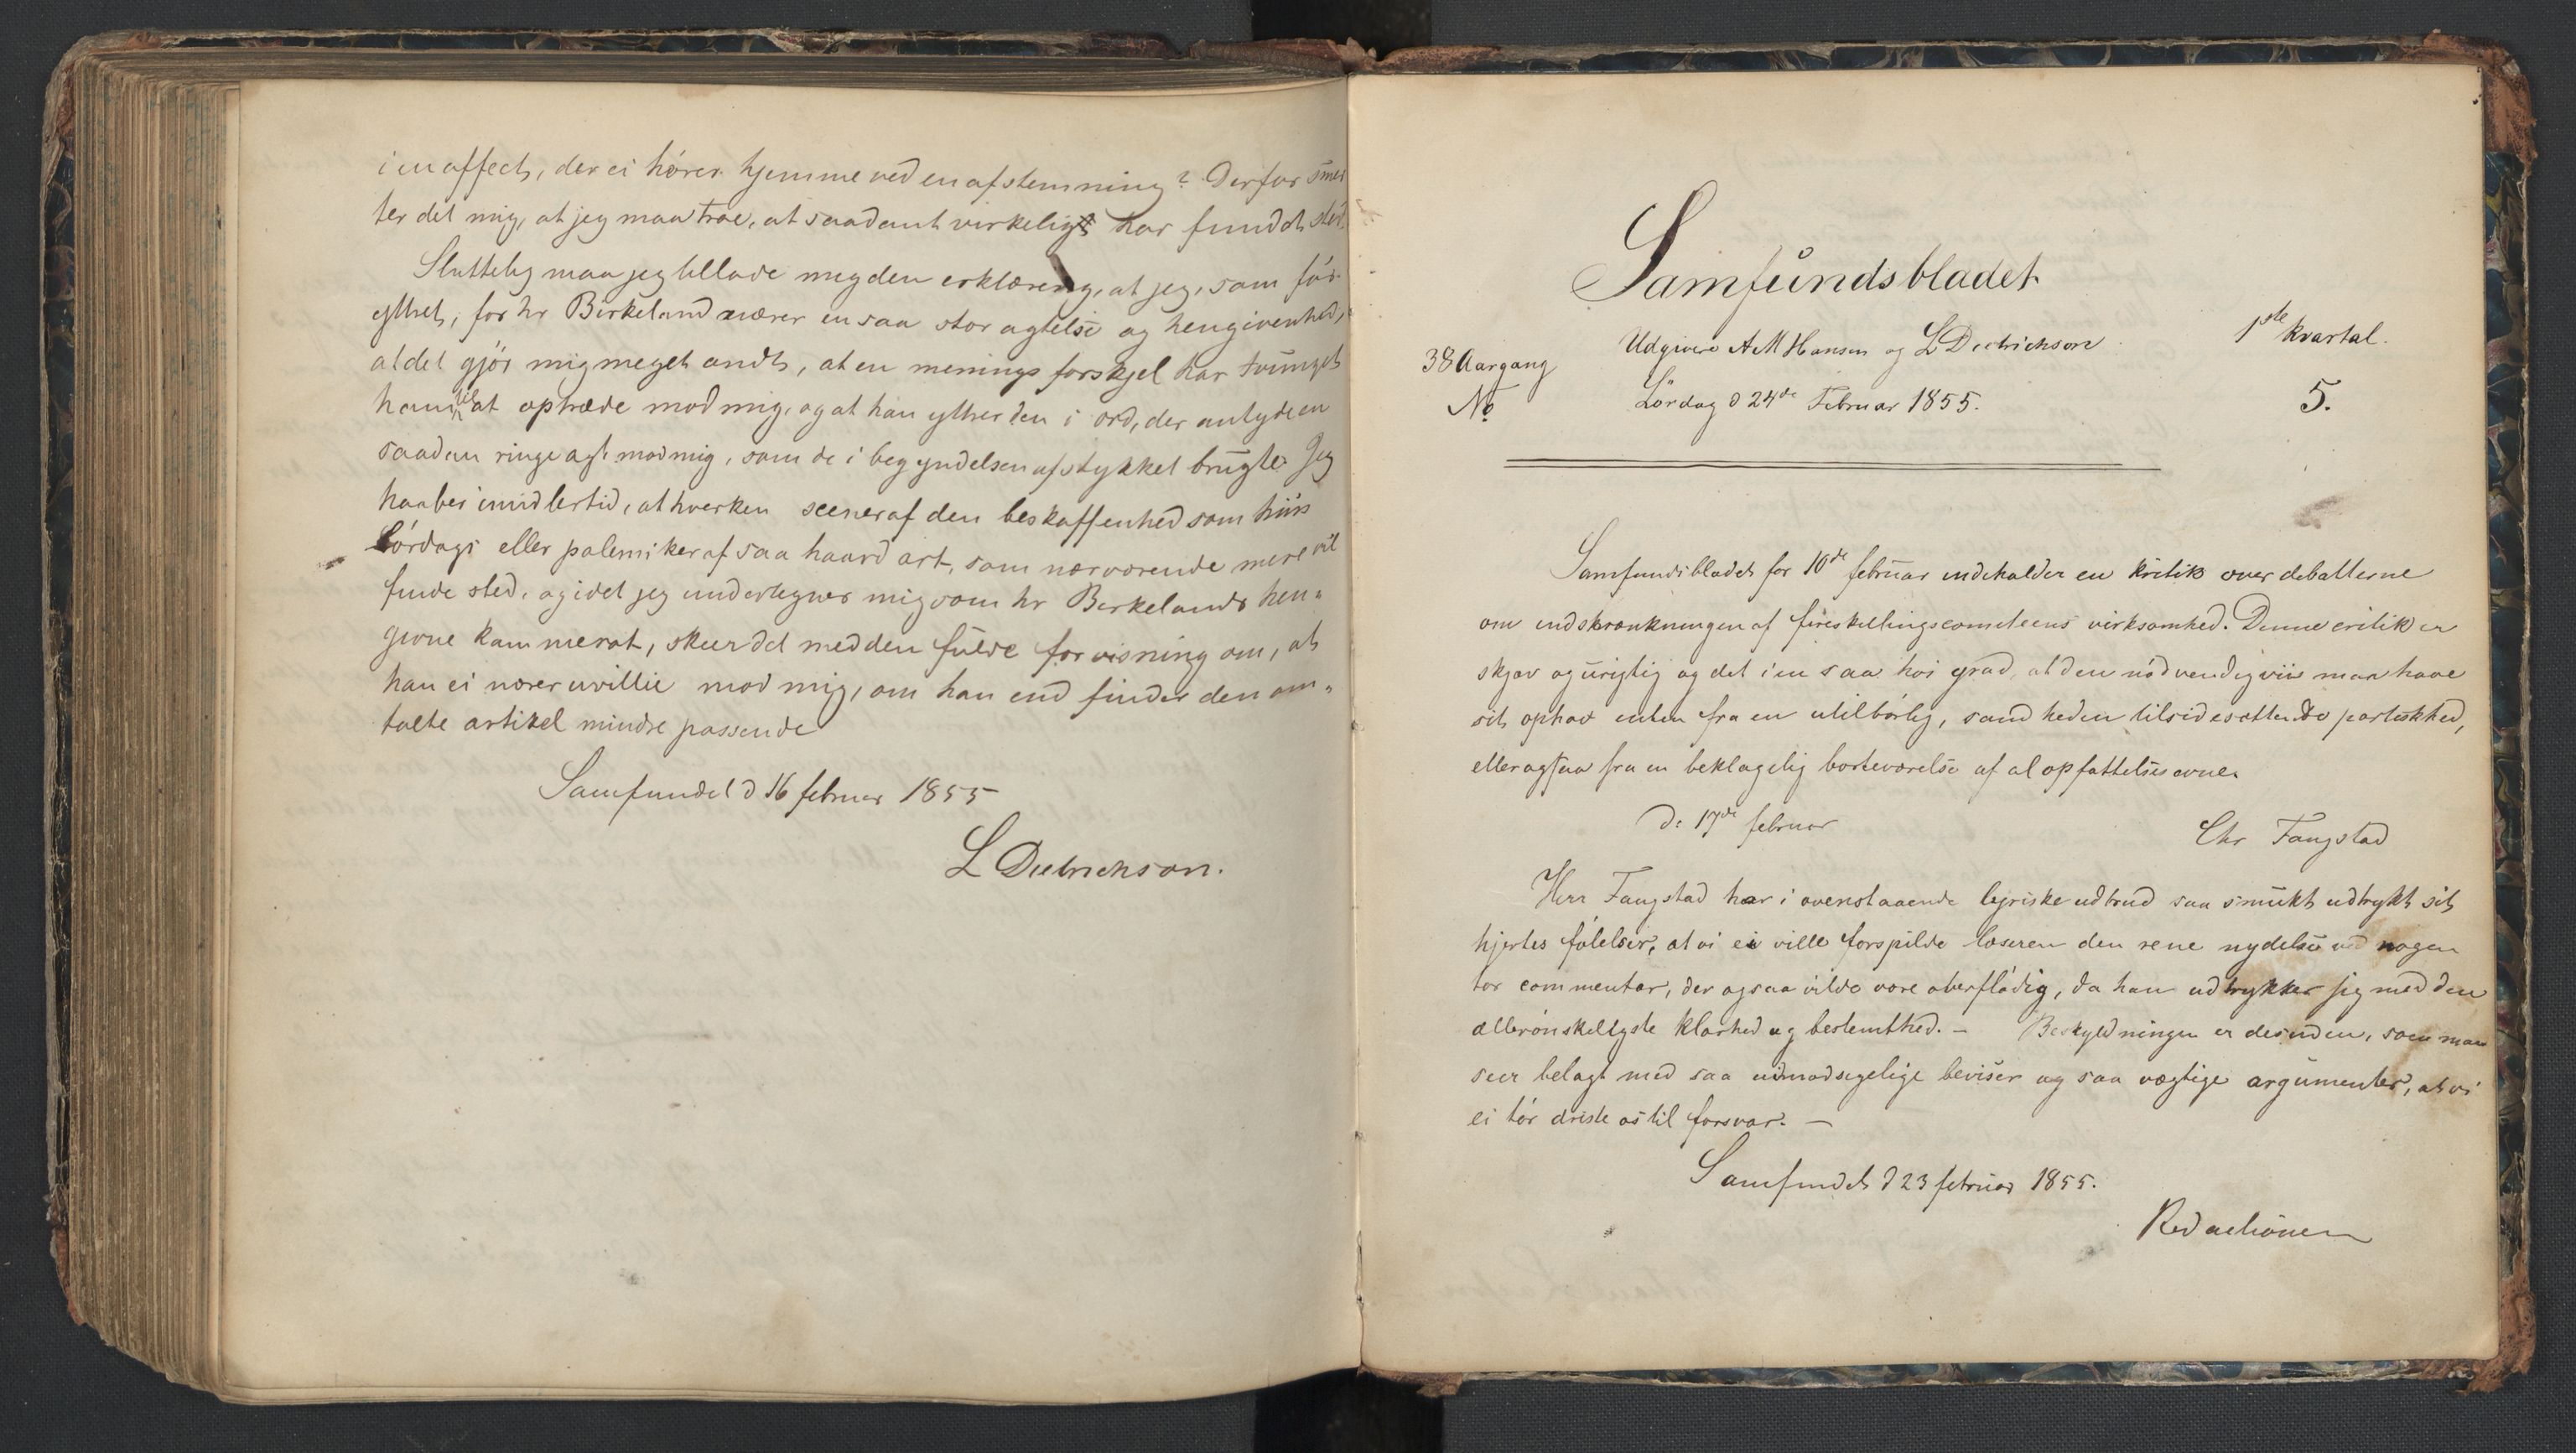 i en affect, der ei hører hjemme ved en afstemning? Derfor smer
ter det mig, at jeg maa troe, at saadant virkeligt har fundet sted.
Sluttelig maa jeg tillade mig den erklæring, at jeg, som før
yttret, for hr Birkeland nærer en saa stor agtelse og hengivenhed,
at det gjør mig meget ondt, at en menings forskjel har tvunget
ham til at optræde mod mig, og at han yttrer den i ord, der antyde en
saadan ringeagt mod mig, som de i begyndelsen af stykket brugte. Jeg
haaber imidlertid, at hverken scener af den beskaffenhed som hiin
Lørdags eller polemiker af saa haard art, som nærværende mere vil
finde sted, og idet jeg undertegner mig som hr Birkelands hen-
givne kammerat, skeer det med den fulde forvisning om, at
han ei nærer uvillie mod mig, om han end finder den om-
talte artikel mindre passende
Samfundet d 16 februar 1855
L Dietrichson.
Samfundsbladet
Udgivere A M Hansen og L Dietrichson
1ste kvartal.
38 Aargang
No
Lørdag d 24de Februar 1855.
5.
Samfundsbladet for 10de februar indeholder en kritik over debatterne
om indskrænkningen af forestillingscomiteens virksomhed. Denne critik er
skjæv og urigtig og det i en saa høi grad, at den nødvendigviis maa have
sit ophav enten fra en utilbørlig, sandheden tilsidesættende partiskhed,
eller ogsaa fra en beklagelig borteværelse af al opfattelsesevne.
D: 17de februar
Chr Fangstad
Herr Fangstad har i ovenstaaende lyriske udbrud saa smukt udtrykt sit
hjertes følelser, at vi ei ville forspilde læseren den rene nydelse ved nogen
tør commentar, der ogsaa vilde være overflødig, da han udtrykker sig med den
allerønskeligste klarhed og bestemthed. – Beskyldningen er desuden, som man
seer belagt med saa uimodsigelige beviser og saa vægtige argumenter, at vi
ei tør driste os til forsvar. –
Samfundet d 23 februar 1855.
Redactionen